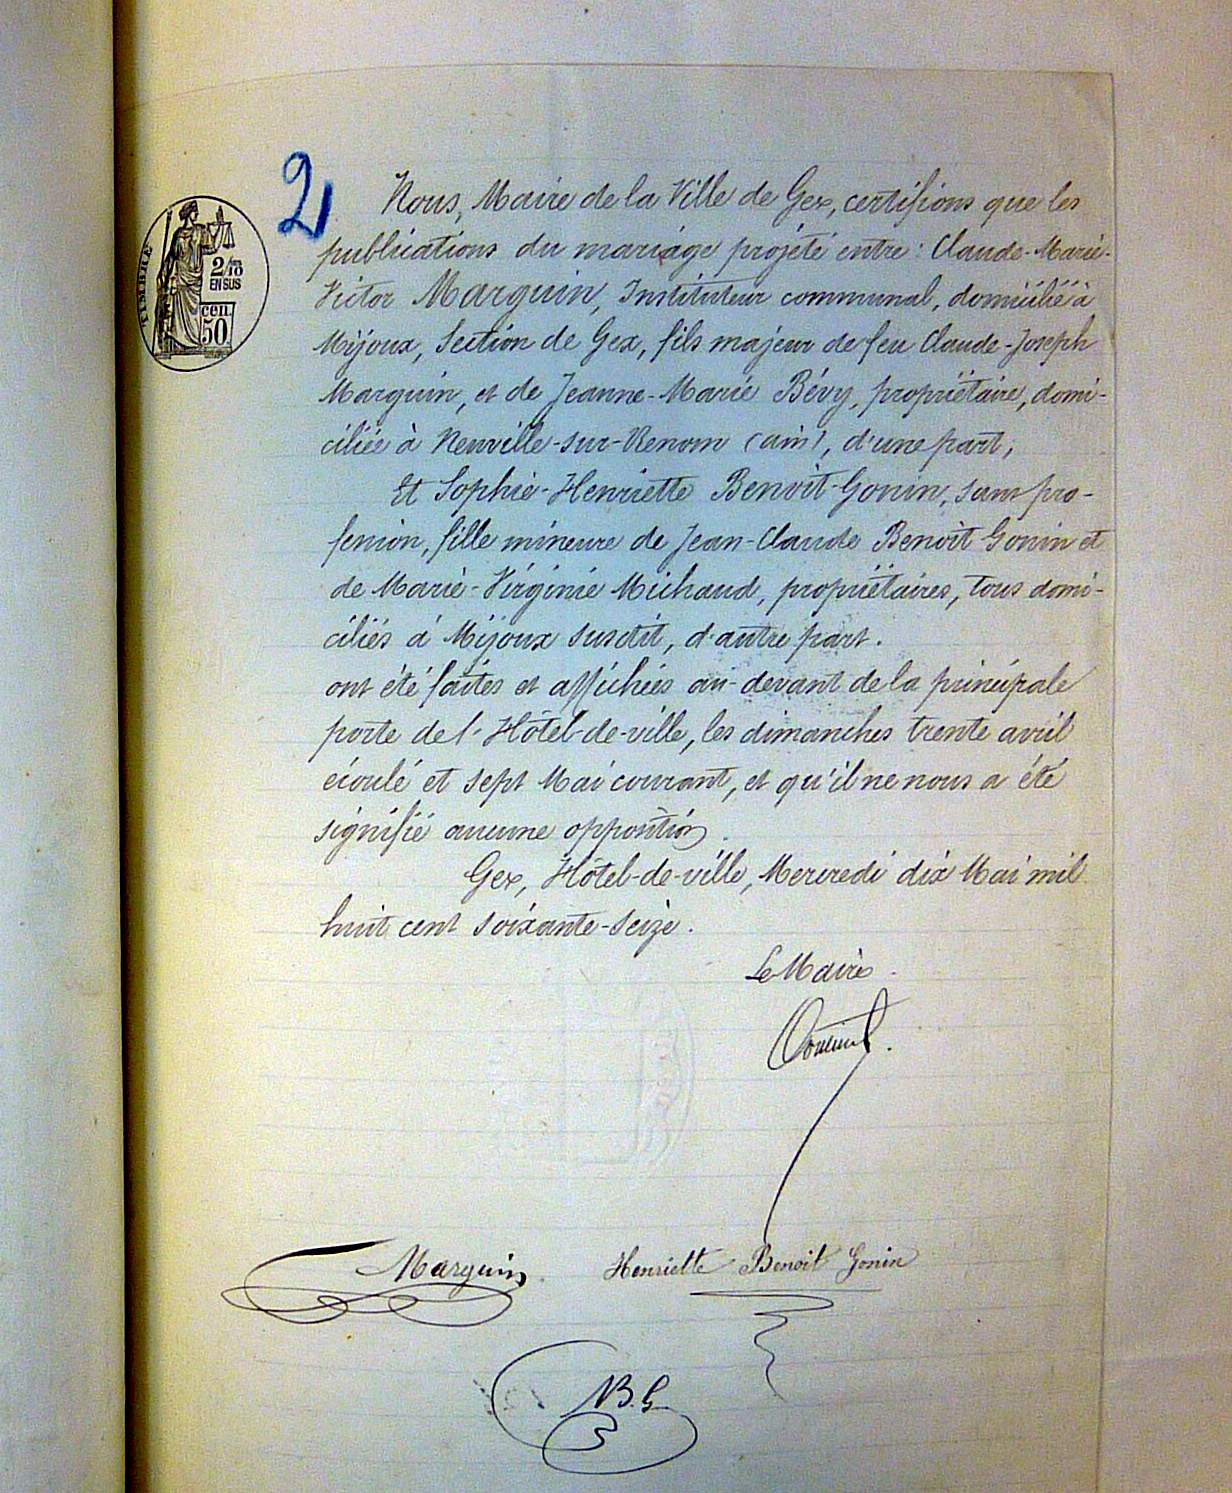 2
TIMBRE
2/10
EN SUS
50
CEN.
Nous, Maire de la Ville de Gex, certifions que les
publications du mariage projeté entre : Claude-Marie-
Victor Marguin, Instituteur communal, domicilié à
Mijoux, Section de Gex, fils majeur de feu Claude-Joseph
Marguin, et de Jeanne-Marie Bévy, propriétaire, domi-
ciliée à Neuville-sur-Renom (ain), d'une part,
Et Sophie-Henriette Benoit-Gonin, sans pro-
fession, fille mineure de Jean-Claude Benoit Gonin et
de Marie-Virginie Michaud, propriétaires, tous domi-
ciliés à Mijoux susdit, d'autre part.
ont été faites et affichées au-devant de la principale
porte de l'Hôtel-de-ville, les dimanches trente avril
écoulé et sept Mai courant, et qu'il ne nous a été
signifié aucune opposition.
Gex, Hôtel-de-ville, Mercredi dix Mai mil
huit cent soixante-seize.
Le Maire.
Marguin.
Henriette Benoit Gonin
B. G.